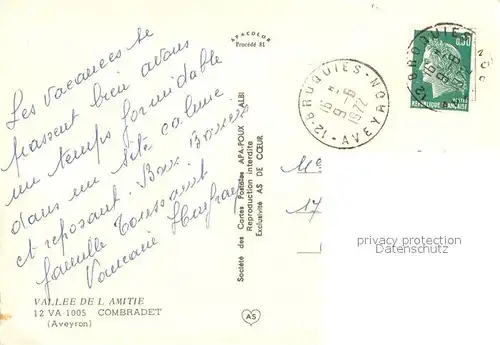 APACOLOR
Procédé 81
Les vacances se
passent bien avons
un temps formidable
dans un site calme
et reposant. Bons Baisers
famille Toussaint
VALLEE DE L AMITIE
12 VA 1005 COMBRADET
(Aveyron)
Société des Cartes Postales APA-POUX ALBI
Reproduction interdite
Exclusivité AS DE CŒUR
AS
12-BROQUIES-NOR
AVEYRON
16 H
9-6
1972
0,30
POSTES
REPUBLIQUE FRANÇAISE
12 BROQUIES
M
17
privacy protection
Datenschutz